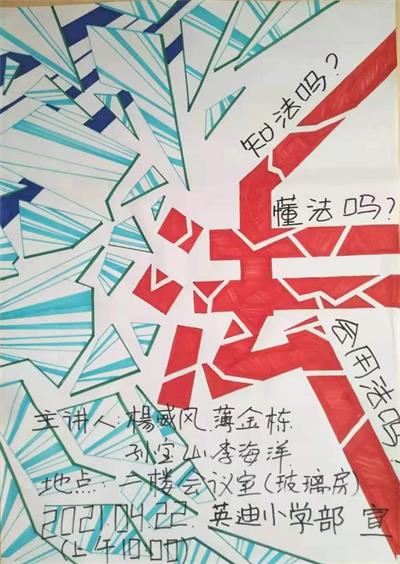 知法吗？
懂法吗？
法
会用法吗
主讲人：楊威风 薄金栋
孙宝山 李海洋
地点：二楼会议室（玻璃房）
2021.04.22. 英迪小学部 宣
（上午10:00）